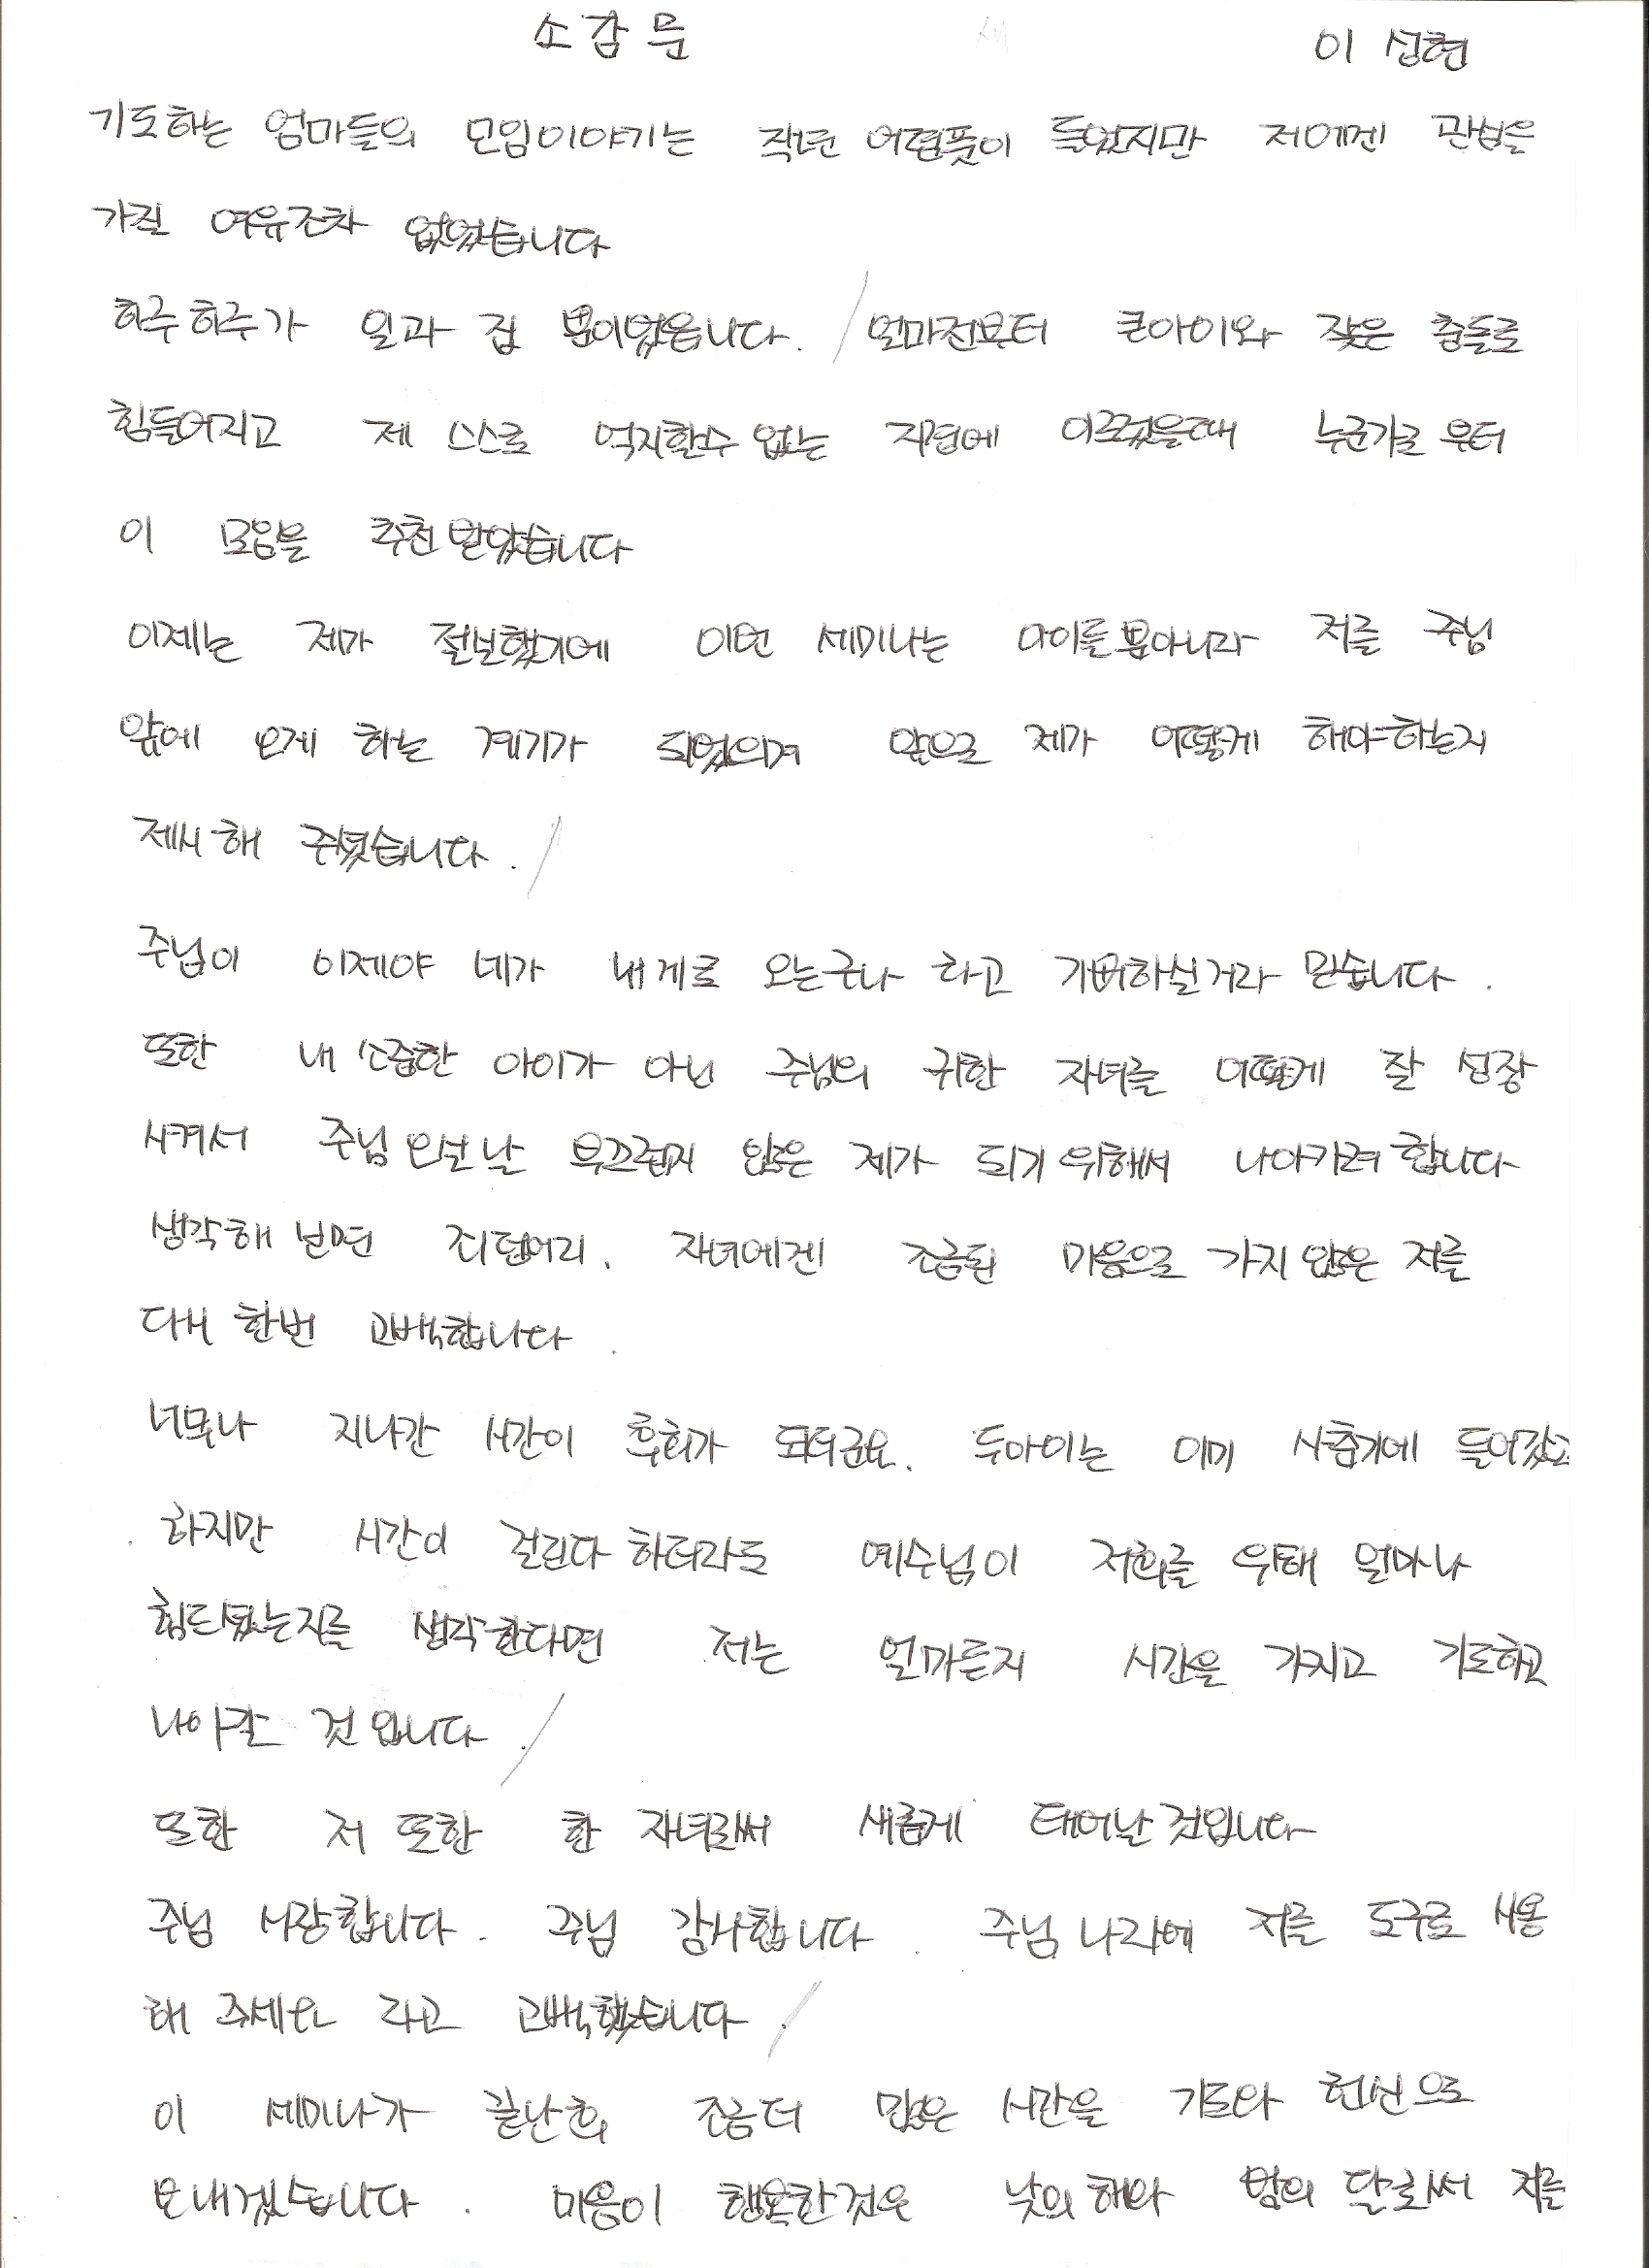 소감문 이성현
기도하는 엄마들의 모임이야기는 작년 어렴풋이 들었지만 저에겐 관심을
가질 여유조차 없었습니다
하루하루가 일과 집 뿐이었읍니다. 얼마전부터 큰아이와 잦은 충돌로
힘들어지고 제 스스로 억지할수 없는 지경에 이르렀을때 누군가로 부터
이 모임을 추천 받았습니다
이제는 제가 절실했기에 이번 세미나는 아이들뿐아니라 저를 주님
앞에 오게 하는 계기가 되었으며 앞으로 제가 어떻게 해야하는지
제시해 주셨습니다.
주님이 이제야 네가 내게로 오는구나 하고 기뻐하실거라 믿습니다.
또한 내 소중한 아이가 아닌 주님의 귀한 자녀를 어떻게 잘 성장
시켜서 주님 오실날 부끄럽지 않은 제가 되기 위해서 나아가려 합니다
생각해 보면 죄 덩어리. 자녀에겐 조급된 마음으로 가지 않은 저를
다시 한번 고백합니다.
너무나 지나간 시간이 후회가 되더군요. 두아이는 이미 사춘기에 들어갔고
하지만 시간이 걸린다 하더라도 예수님이 저희를 위해 얼마나
힘드셨는지를 생각한다면 저는 얼마든지 시간을 가지고 기도하고
나아갈 것 입니다.
또한 저 또한 한 자녀로써 새롭게 태어날 것입니다
주님 사랑합니다. 주님 감사합니다. 주님 나라에 저를 도구로 사용
해 주세요 라고 고백했습니다.
이 세미나가 끝난후 조금더 많은 시간을 기도와 헌신으로
보내겠습니다. 마음이 행복한것은 낮의 해와 밤의 달로써 저를